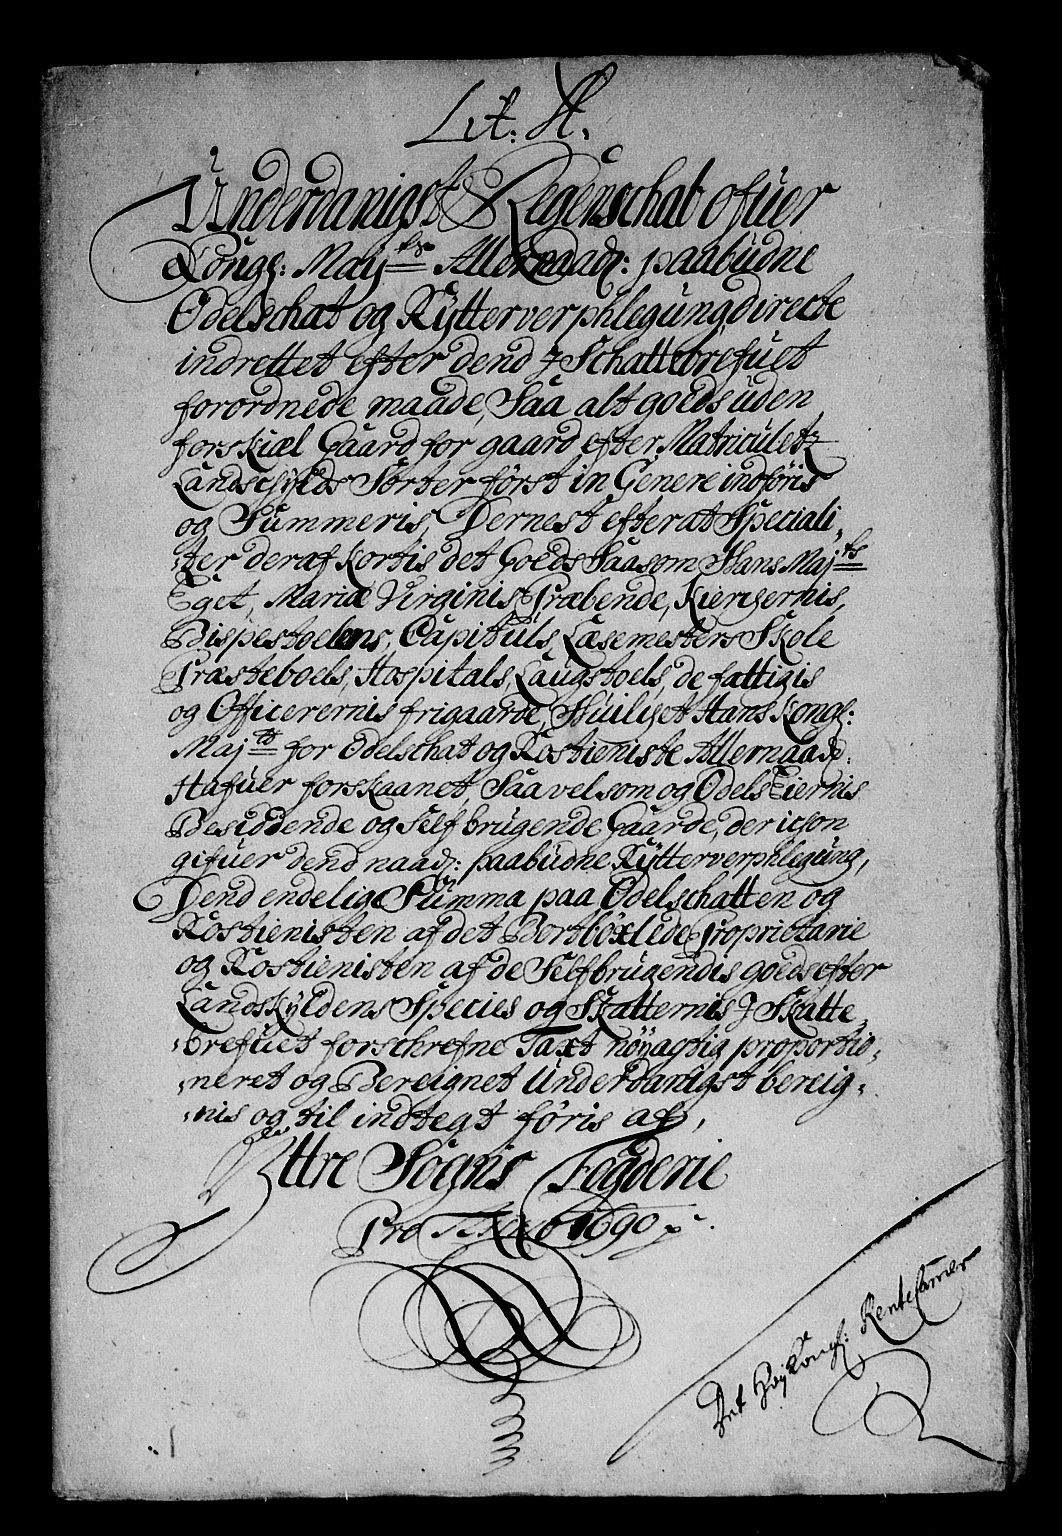 Lit: A.
Underdanigst Regenschab ofuer
Kongl: May:ts Allernaad: paabudne
Odelschat og Rytterverphlegung directe
indrettet efter dend Schattebrefuet
forordnede maade, Saa alt goeds uden
forskiæl Gaard for gaard efter Matriculet
Landschylds Sorter först in Genere indföris
og Summeris, Dernest efter at Speciali-
ter deraf kortis det Goeds Saasom Hans Maj:ts
Eget, Mariæ Virginis Præbende, Kierchernis,
Bispestoelens, Capituls, Læsemesters Skole
Præsteboels, Hospitals, Laugstoels, de fattigis
og Officerernis frigaarde, Huilchet Hans Kongl:
Maj:tt for Odelschat og Rostieniste Allernaad:
Hafuer forskaanet, Saavelsom og Odels Eiernis
Besiddende og Self brugende Gaarde, der icHon
gifuer dend naad: paabudne Rytterverphlegung,
Dend endelige Summa paa Odelschatten og
Rostienisten af det Bortböxlede Proprietarie
og Rostienisten af de Selfbrugendis goeds efter
Landskyldens Species og Skatternis J Skatte-
brefuet forschrefne Taxt nöyagtig proportio-
neret og Bereignet Underdanigst bereig-
nis og til indtegt föris af,
Yttre Sogns Fogderie
Pro Anno 1690
Det Höy Kongl: Rente Camer